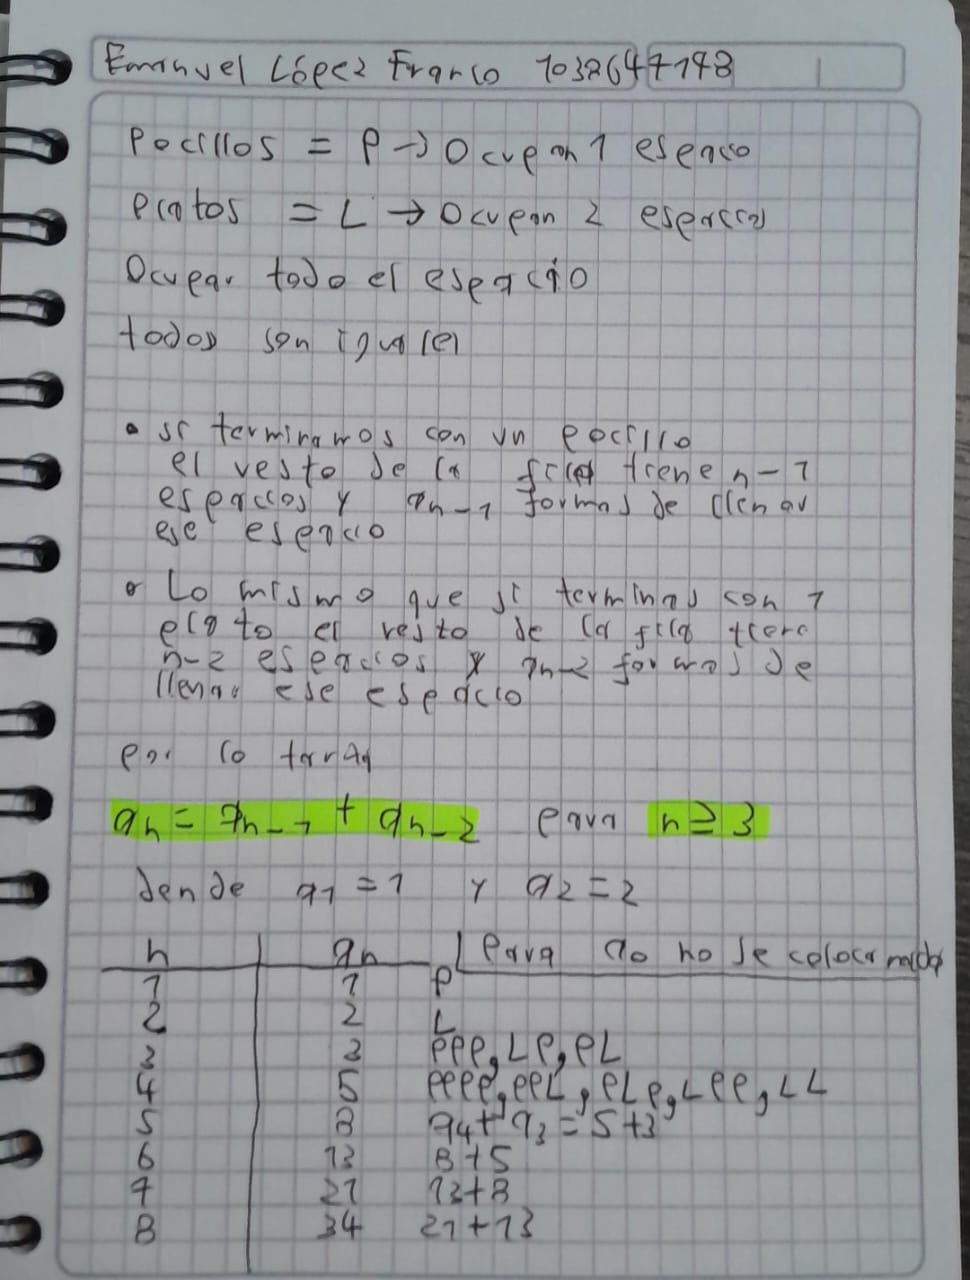 Emanuel López Franco 1038647198
Pocillos = P → Ocupan 1 espacio
Platos = L → Ocupan 2 espacios
Ocupar todo el espacio
todos son iguales
• si terminamos con un pocillo
el resto de la fila tiene n-1
espacios y an-1 formas de llenar
ese espacio
• Lo mismo que si terminas con 1
plato el resto de la fila tiene
n-2 espacios y an-2 formas de
llenar ese espacio
por lo tanto
an = an-1 + an-2 para n≥3
donde a1=1 y a2=2
n an Para a0 no se coloca nada
1 1 P
2 2 L
3 3 PPP, LP, PL
4 5 PPPP, PPL, PLP, LPP, LL
5 8 a4+a3=5+3
6 13 8+5
7 21 13+8
8 34 21+13